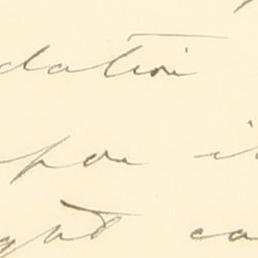 dation
upon i
ght ca